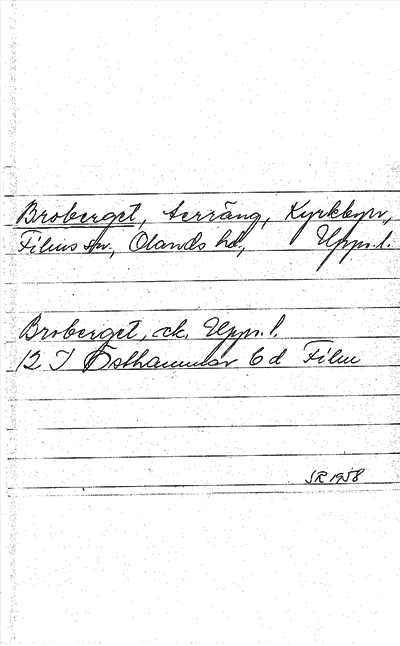 Broberget, terräng, Kyrkbyn,
Films sn, Olands hd, Upps.l.
Broberget, ek. Upps. l.
12 I Östhammar 6 d Film
SR 1958